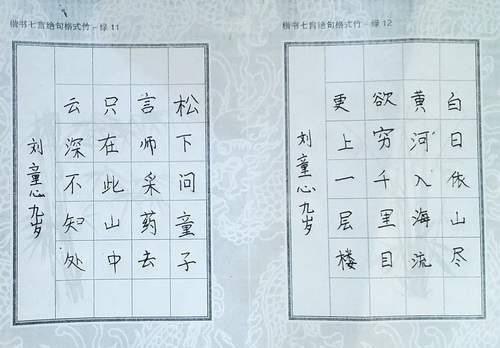 楷书七言绝句格式竹－绿 11
松下问童子
言师采药去
只在此山中
云深不知处
刘童心九岁
楷书七言绝句格式竹－绿 12
白日依山尽
黄河入海流
欲穷千里目
更上一层楼
刘童心九岁